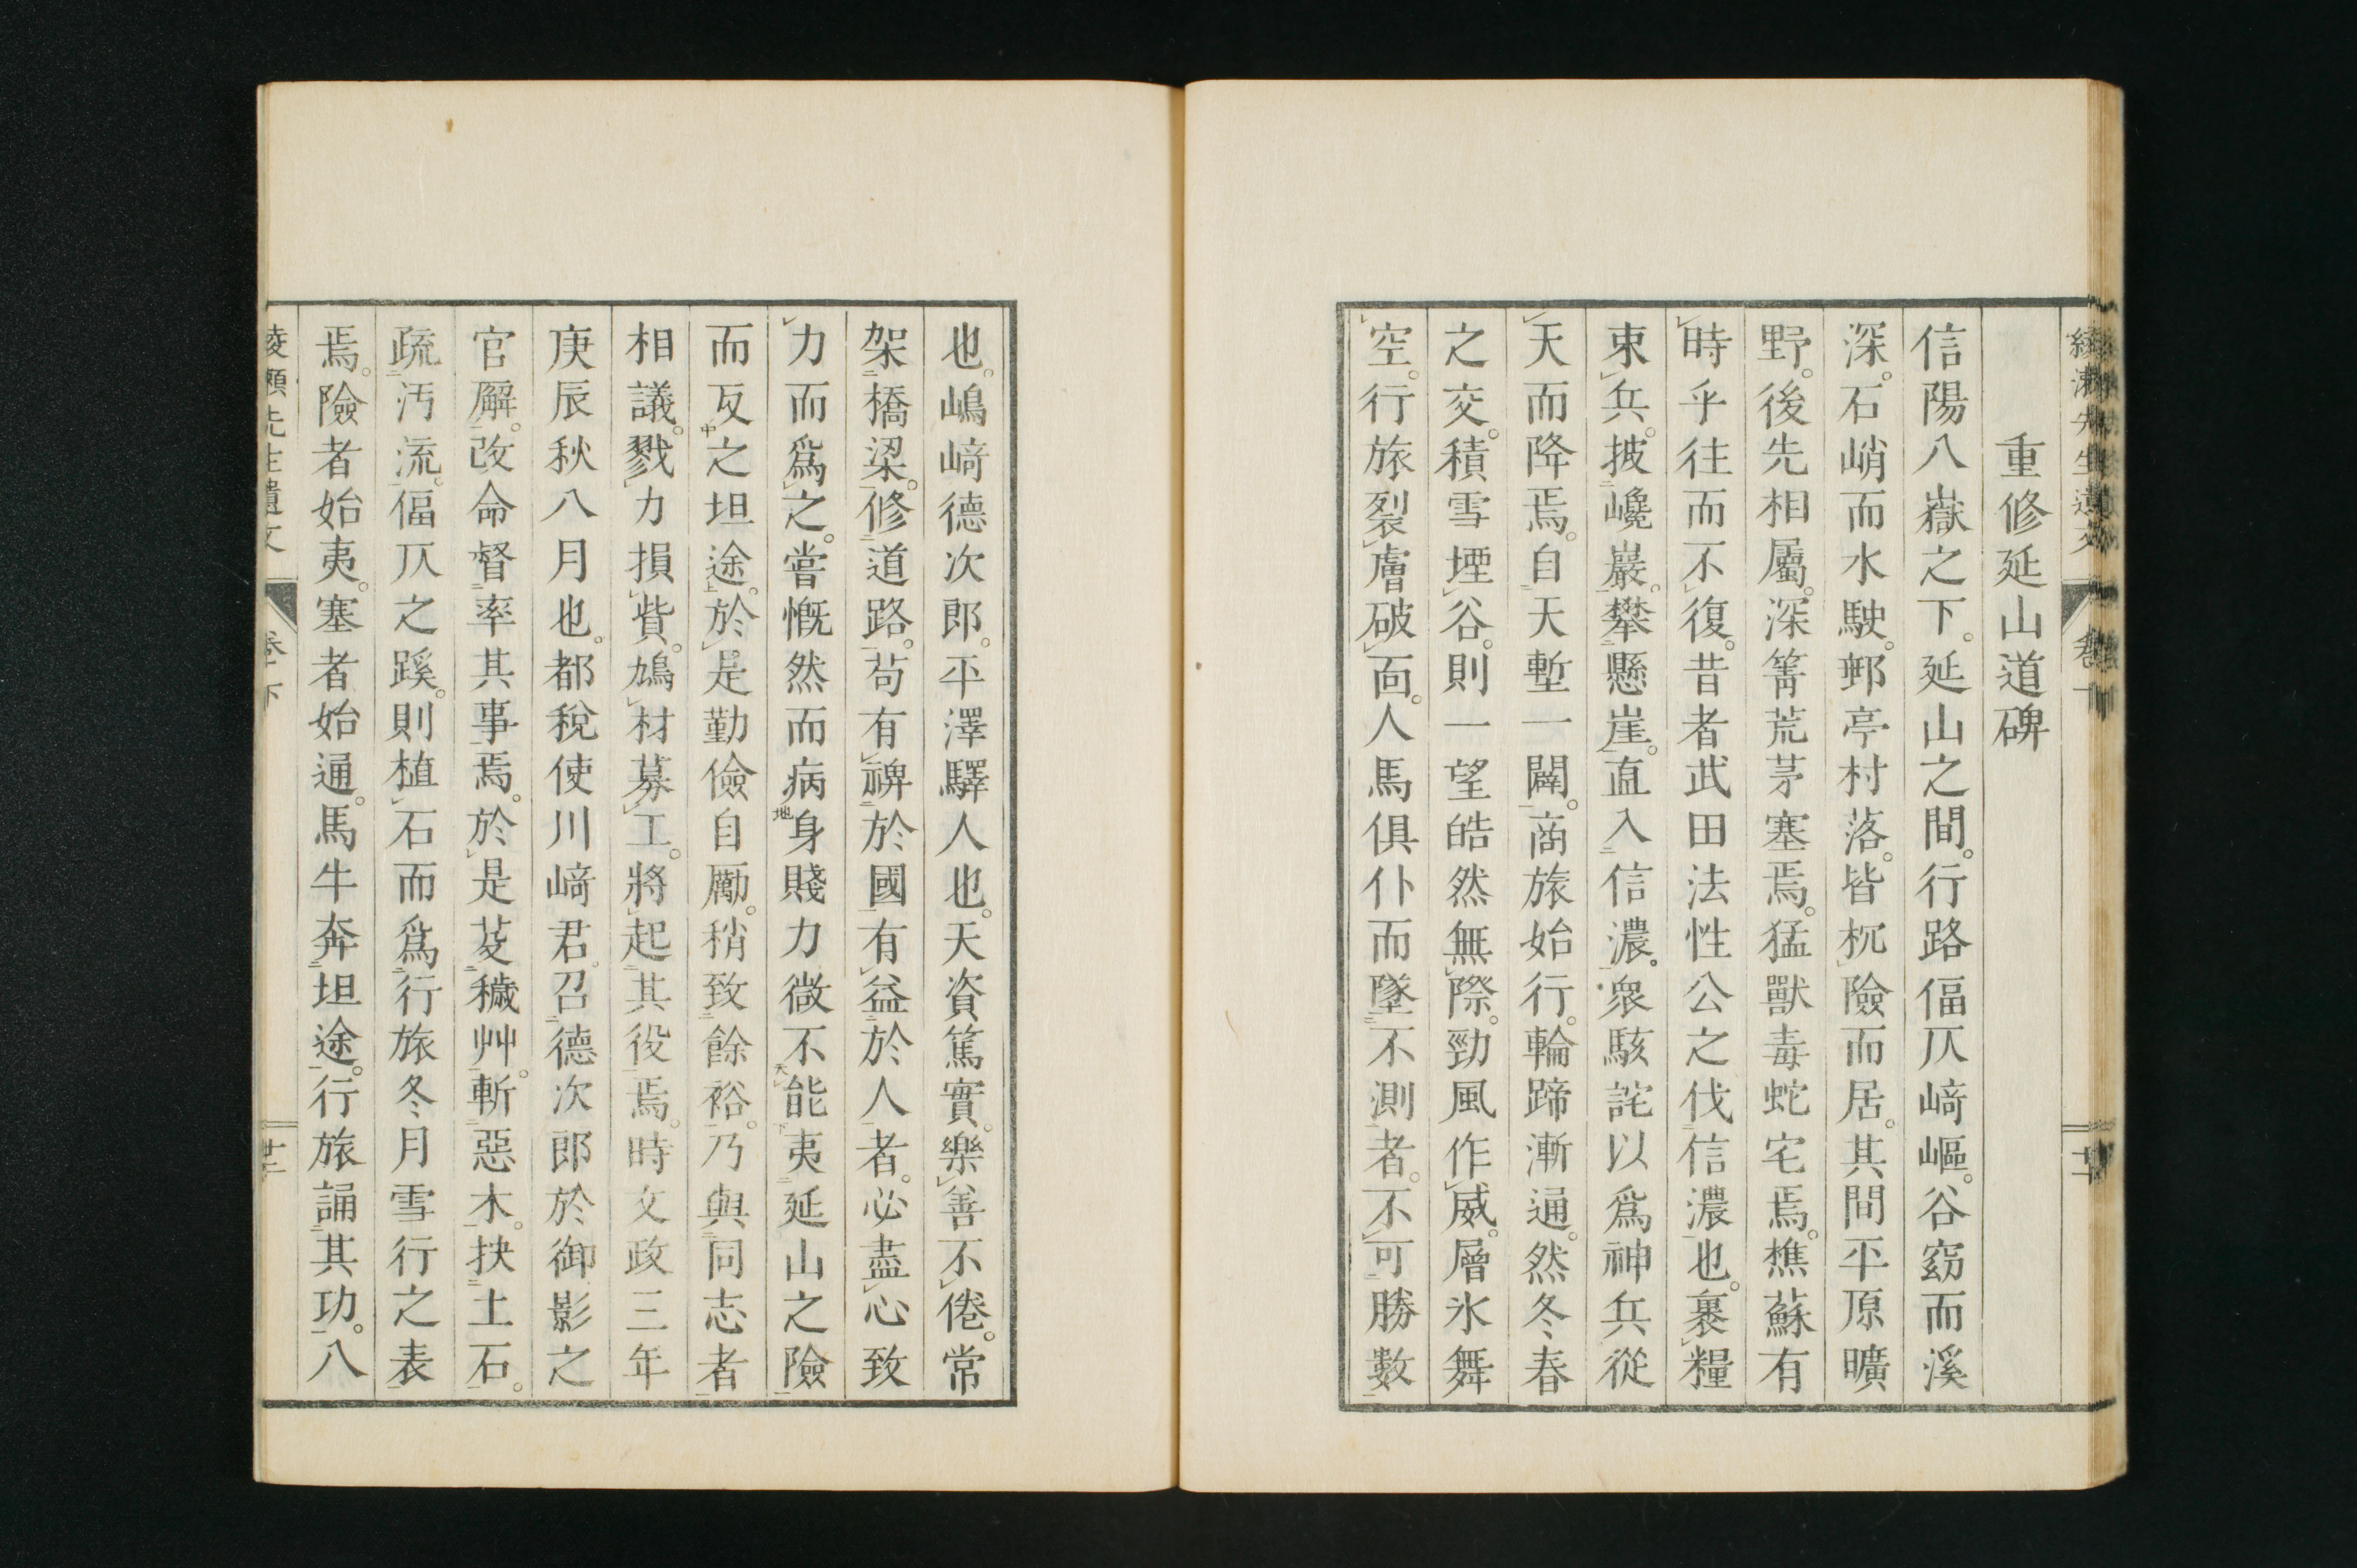 重修延山道碑
信陽八嶽之下。延山之間。行路偪仄﨑嶇。谷窈而溪
深。石峭而水駛。郵亭村落。皆枕險而居。其間平原曠
野。後先相屬。深箐荒茅塞焉。猛獸毒蛇宅焉。樵蘇有
時乎往而不復。昔者武田法性公之伐信濃也。裹糧
束兵。披巉巖。攀懸崖。直入信濃。衆駭詫以爲神兵從
天而降焉。自天塹一闢。商旅始行。輪蹄漸通。然冬春
之交。積雪堙谷。則一望皓然無際。勁風作威。層氷舞
空。行旅裂膚破面。人馬俱仆而墜不測者。不可勝數
也。嶋﨑德次郎。平澤驛人也。天資篤實。樂善不倦。常
架橋梁。修道路。苟有裨於國有益於人者。必盡心致
力而爲之。嘗慨然而病身賤力微不能夷延山之險
而反之坦途。於是勤儉自勵。稍致餘裕。乃與同志者
相議。戮力損貲。鳩材募工。將起其役焉。時文政三年
庚辰秋八月也。都稅使川﨑君。召德次郎於御影之
官廨。改命督率其事焉。於是芟穢艸。斬惡木。抉土石。
疏汚流。偪仄之蹊。則植石而爲行旅冬月雪行之表
焉。險者始夷。塞者始通。馬牛奔坦途。行旅誦其功。八
先生遺文 卷下 廿二